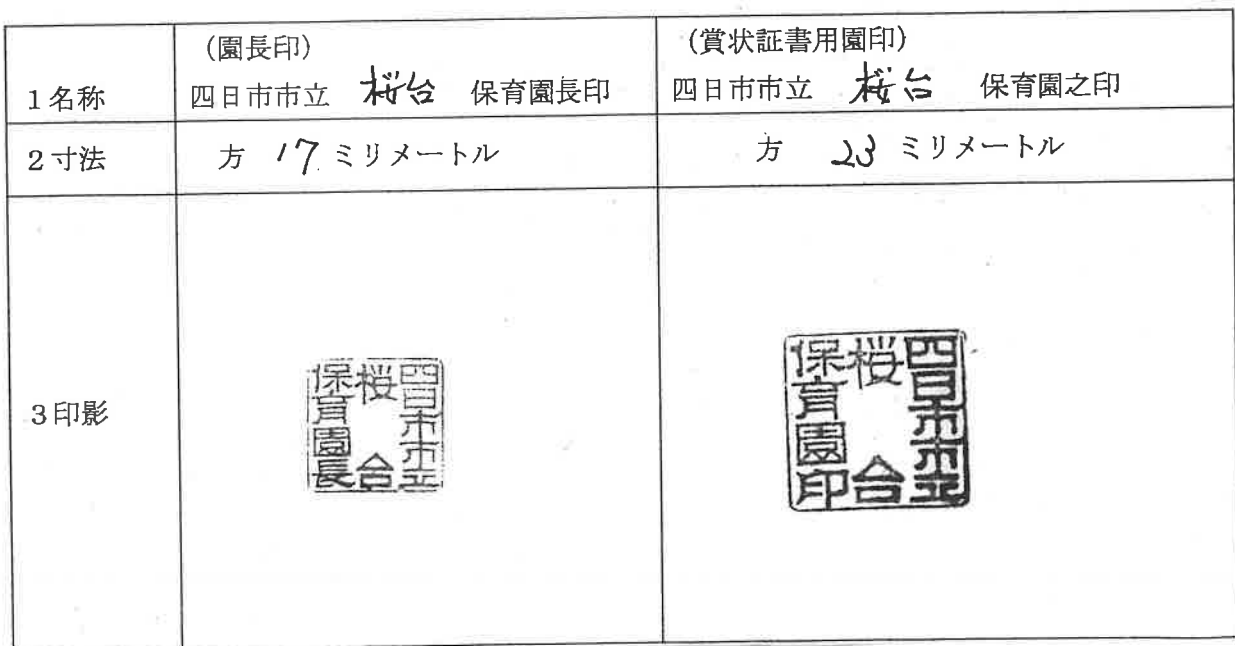 (園長印)
四日市市立 桜台 保育園長印
(賞状証書用園印)
四日市市立 桜台 保育園之印
1名称
2寸法
方 17 ミリメートル
方 23 ミリメートル
3印影
四日市市立
桜台
保育園長
四日市市立
桜台
保育園印